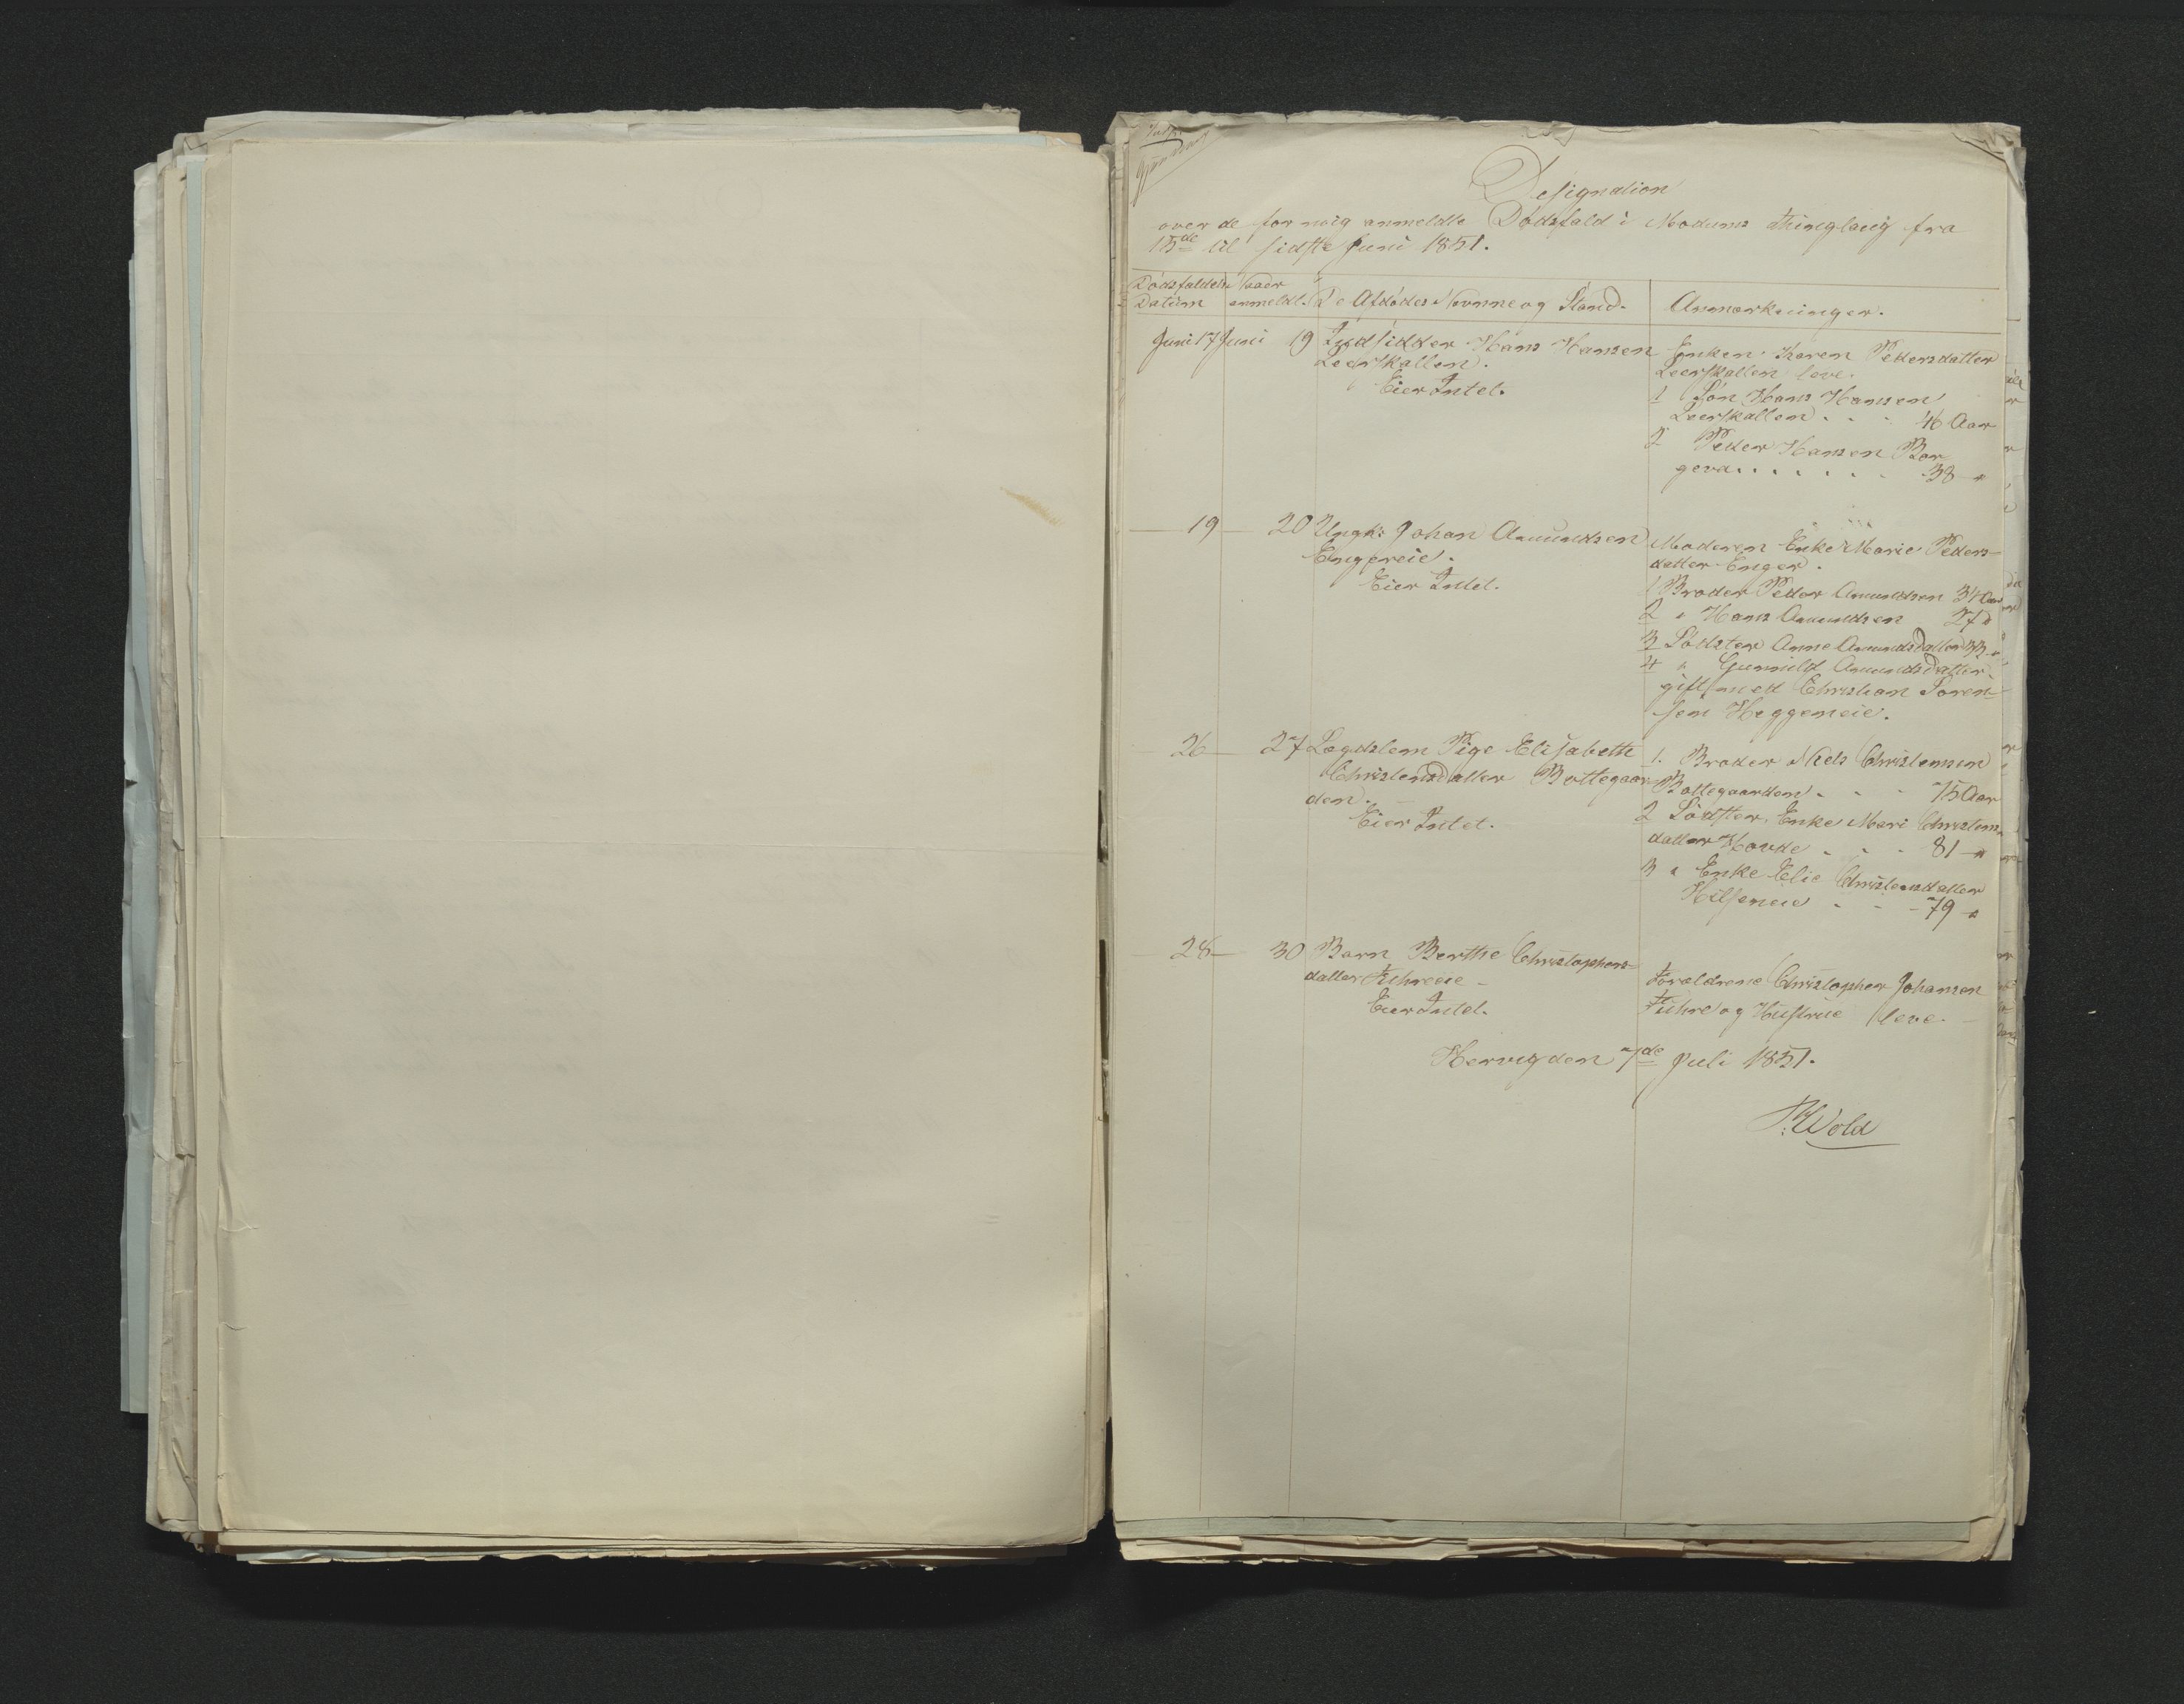 Designation
over de for mig anmeldte Dødsfald i Modums thinglaug fra
15de til sidste Juni 1851.
Dødsfaldets Datum
Naar anmeldt.
De Afdødes Navnne og Stand.
Anmærkninger.
Juni 17 Juni 19 Indsidder Hans Hansen
Leerskallen.
Eier Intet.
Enken Karen Pedersdatter
Leerskallen leve.
1 Søn Hans Hansen
Leerskallen . . . 46 Aar
2 Peder Hansen Bor
geva . . . . . . . 38 "
— 19 — 20 Ungk: Johan Amundsen
Engereie.
Eier Intet.
Moderen Enke Marie Peders-
datter Enger.
1 Broder Peder Amundsen 34 Aar
2 " Hans Amundsen 27 "
3 Södster Anne Amundsdatter 33 "
4 " Gunnild Amundsdatter
gift med Christian Soren-
sen Heggeneie.
26 — 27 Lægdslem Pige Elisabeth
Christensdatter Bottegaar-
den.
Eier Intet.
1. Broder Niels Christensen
Bottegaarden . . . 75 Aar
2 Södster Enke Mari Christens-
datter Hovde . . . 81 "
3 " Enke Elie Christensdatter
Hilseneie . . . 79 "
— 28 — 30 Barn Berthe Christophers-
datter Fuhreeie
Eier Intet.
Foreldrene Christopher Johansen
Fuhre og Hustrue leve.
Hervig den 7de Juli 1851.
Wold